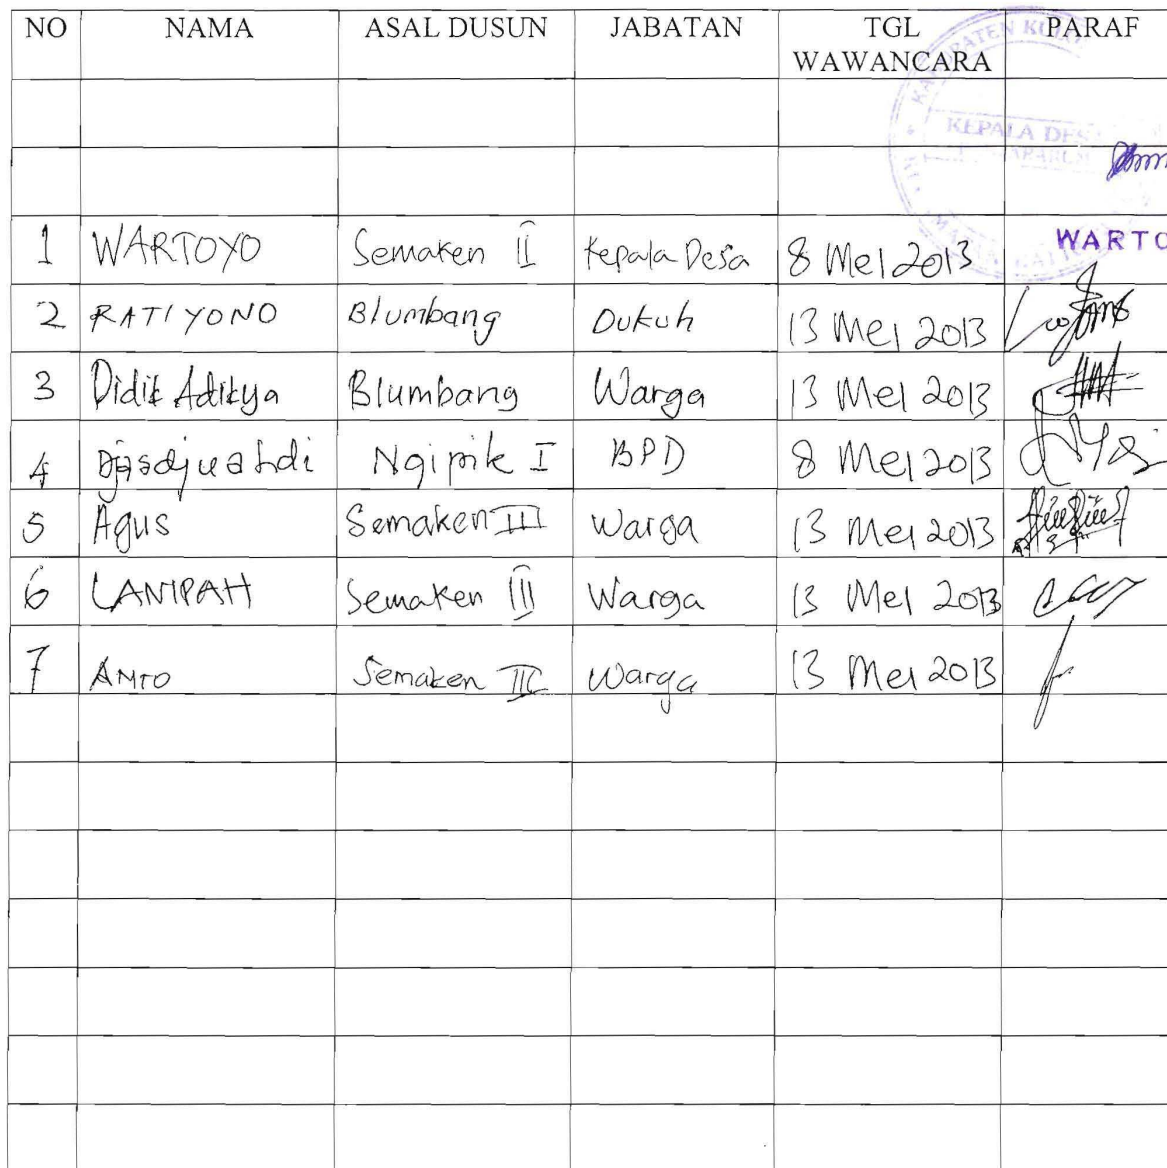 NO NAMA ASAL DUSUN JABATAN TGL WAWANCARA PARAF
KEPALA DES
1 WARTOYO Semaken II Kepala Desa 8 Mei 2013 WARTO
2 RATIYONO Blumbang Dukuh 13 Mei 2013
3 Didik Aditya Blumbang Warga 13 Mei 2013
4 Ngipik I BPD 8 Mei 2013
5 Agus Semaken III Warga 13 Mei 2013
6 Semaken III Warga 13 Mei 2013
7 Semaken III Warga 13 Mei 2013